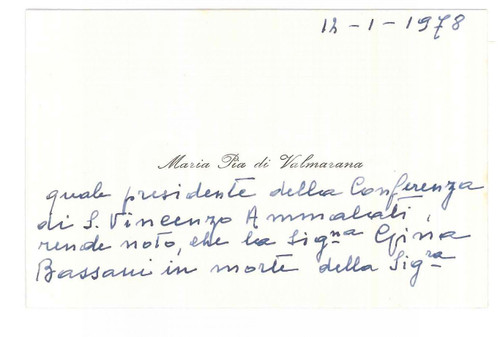 12-1-1978
Maria Pia di Valmarana
quale presidente della Conferenza
di S. Vincenzo Ammalati,
rende noto, che la Sigⁿᵃ Gina
Bassani in morte della Sigʳᵃ